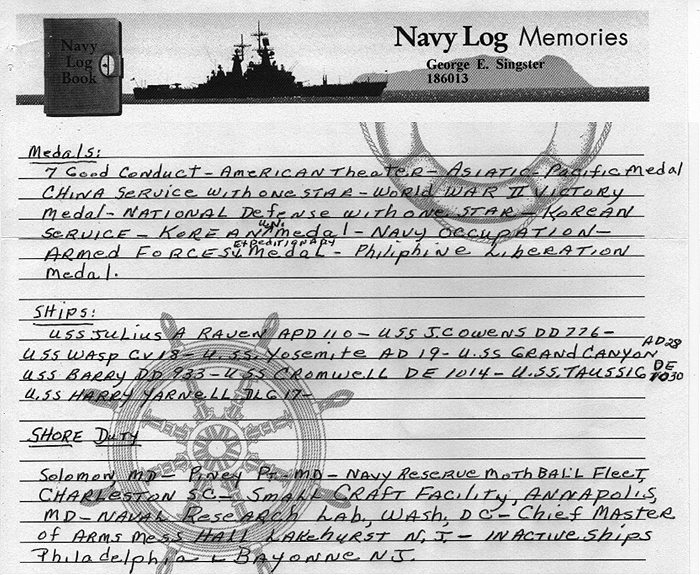 Navy Log Book
Navy Log Memories
George E. Singster
186013
Medals:
7 Good Conduct - American Theater - Asiatic - Pacific Medal
China Service with one star - World War II Victory
Medal - National Defense with one star - Korean
Service - Korean U.N. Medal - Navy Occupation -
Armed Forces Expeditionary Medal - Philiphine Liberation
Medal.
Ships:
USS Julius A Raven APD 110 - USS J.C Owens DD 776 -
USS Wasp CV 18 - U.SS. Yosemite AD 19 - U.SS Grand Canyon AD 28
USS Barry DD 933 - USS Cromwell DE 1014 - U.S.S. Taussig DE 1030
U.SS Harry Yarnell DLG 17 -
Shore Duty
Solomon, MD - Piney Pt. - MD - Navy Reserve Moth Ball Fleet,
Charleston SC - Small Craft Facility, Annapolis,
MD - Naval Research Lab, Wash, DC - Chief Master
of Arms Mess Hall Lakehurst N.J. - Inactive Ships
Philadelphia & Bayonne N.J.